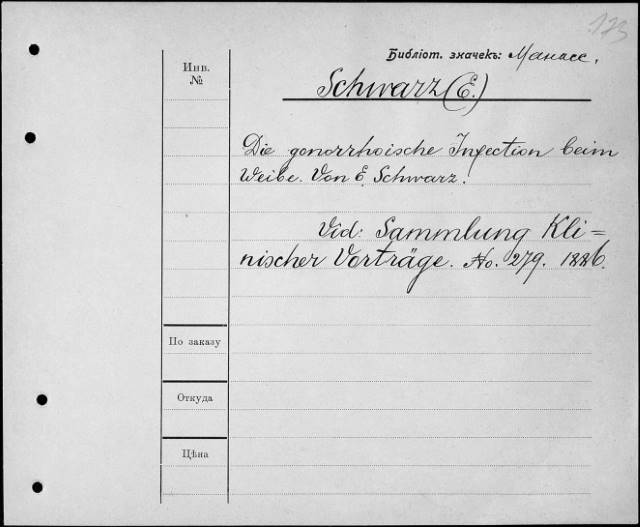 123
Библіот. значекъ: Манасс.
Инв.
№
Schwarz (E.)
Die gonorrhoische Infection beim
Weibe. Von E. Schwarz.
Vid: Sammlung Kli=
nischer Vorträge. No. 279. 1886.
По заказу
Откуда
Цѣна